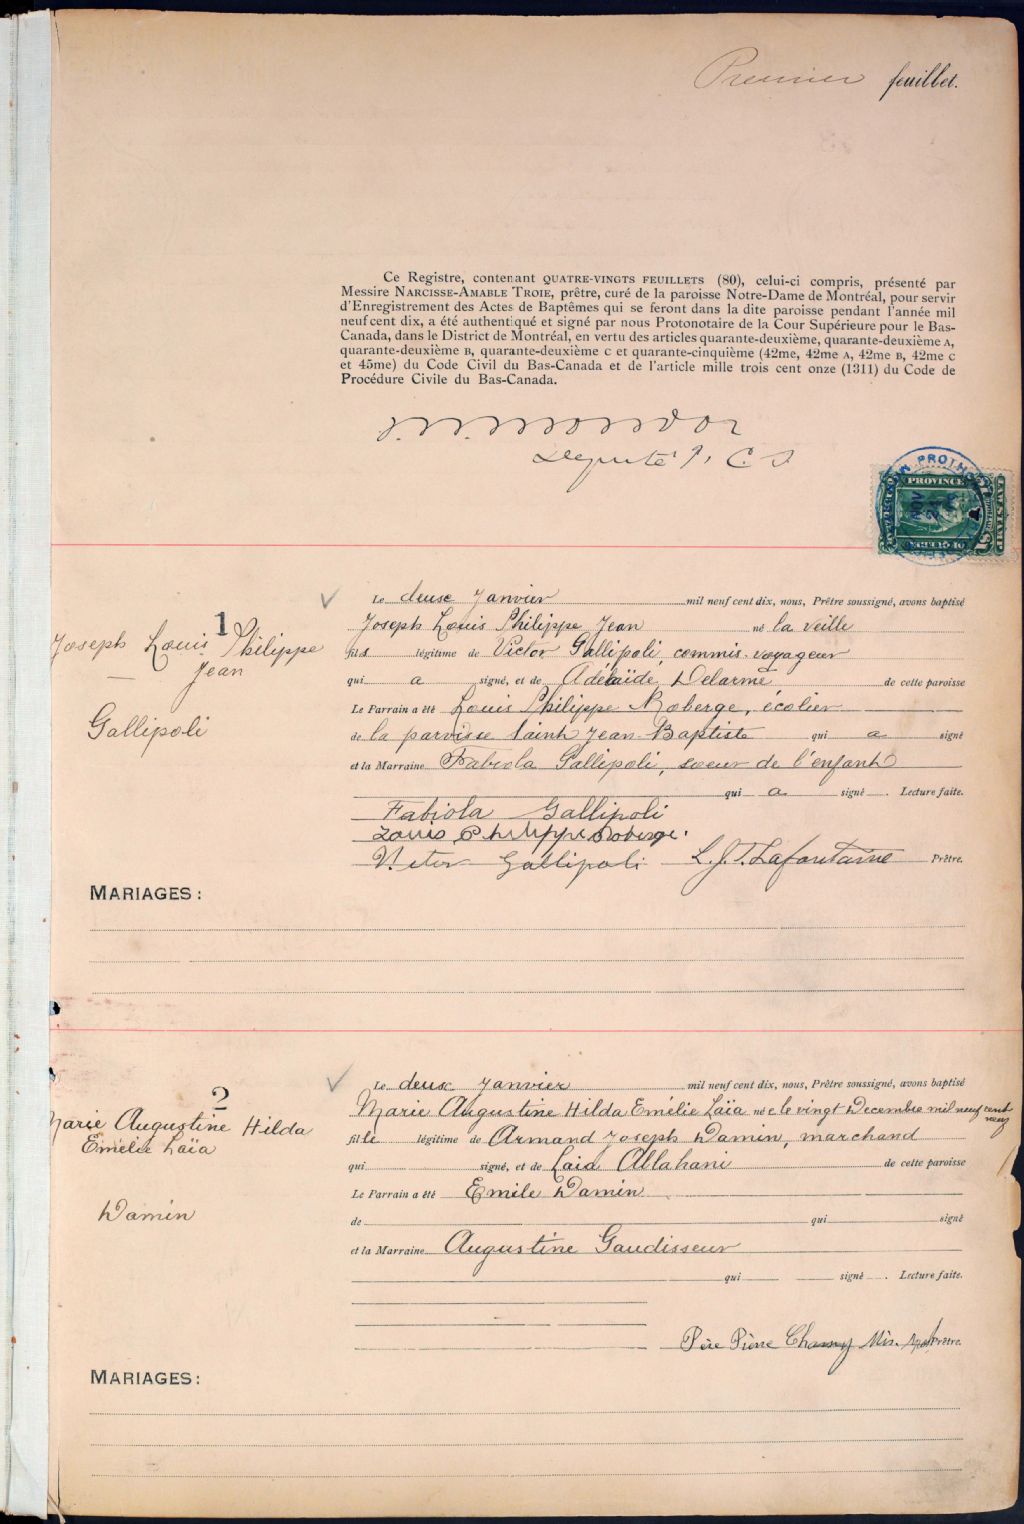 Premier feuillet.
Ce Registre, contenant QUATRE-VINGTS FEUILLETS (80), celui-ci compris, présenté par
Messire NARCISSE-AMABLE TROIE, prêtre, curé de la paroisse Notre-Dame de Montréal, pour servir
d'Enregistrement des Actes de Baptêmes qui se feront dans la dite paroisse pendant l'année mil
neuf cent dix, a été authentiqué et signé par nous Protonotaire de la Cour Supérieure pour le Bas-
Canada, dans le District de Montréal, en vertu des articles quarante-deuxième, quarante-deuxième A,
quarante-deuxième B, quarante-deuxième C et quarante-cinquième (42me, 42me A, 42me B, 42me C
et 45me) du Code Civil du Bas-Canada et de l'article mille trois cent onze (1311) du Code de
Procédure Civile du Bas-Canada.
Député P. C. S.
PROVINCE
LAW STAMP
NOV
$1
1
Joseph Louis Philippe
Jean
Gallipoli
Le deuse Janvier mil neuf cent dix, nous, Prêtre soussigné, avons baptisé
Joseph Louis Philippe Jean né la veille
fils légitime de Victor Gallipoli, commis-voyageur
qui a signé, et de Adélaïde Delarme de cette paroisse
Le Parrain a été Louis Philippe Roberge, écolier
de la paroisse Saint Jean-Baptiste qui a signé
et la Marraine Fabiola Gallipoli, soeur de l'enfant
qui a signé. Lecture faite.
Fabiola Gallipoli
Louis Philippe Roberge.
Victor Gallipoli L. J. T. Lafontaine Prêtre.
MARIAGES:
2
Marie Augustine Hilda
Emélie Laïa
Damin
Le deuse Janvier mil neuf cent dix, nous, Prêtre soussigné, avons baptisé
Marie Augustine Hilda Emélie Laïa née le vingt Decembre mil neuf cent
neuf
fille légitime de Armand Joseph Damin, marchand
qui signé, et de Laia Allahani de cette paroisse
Le Parrain a été Emile Damin
de qui signé
et la Marraine Augustine Gaudisseur
qui signé. Lecture faite.
Père Pierre Chamy Mis. Apos. Prêtre.
MARIAGES: